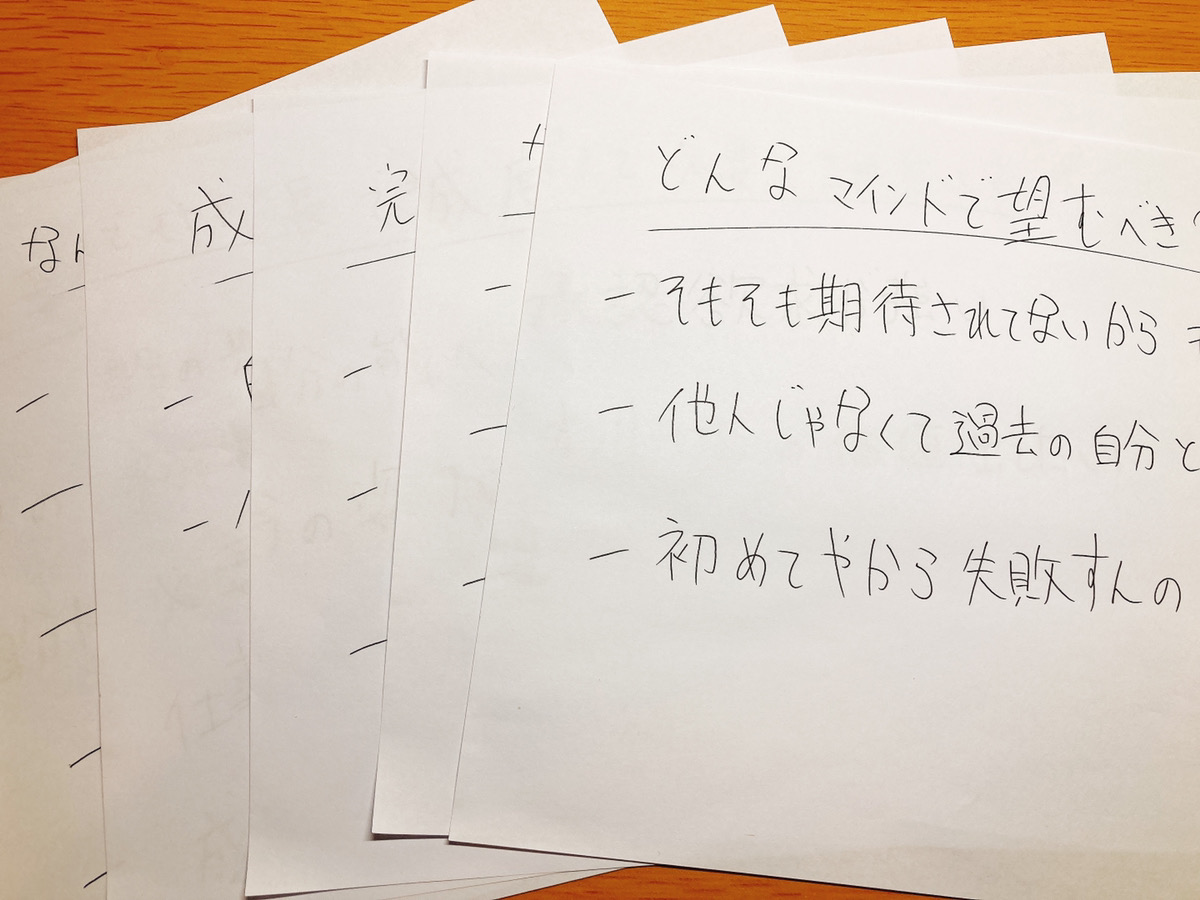 どんなマインドで望むべき
- そもそも期待されてないから
- 他人じゃなくて過去の自分と
- 初めてやから失敗すんの
完
成
なん